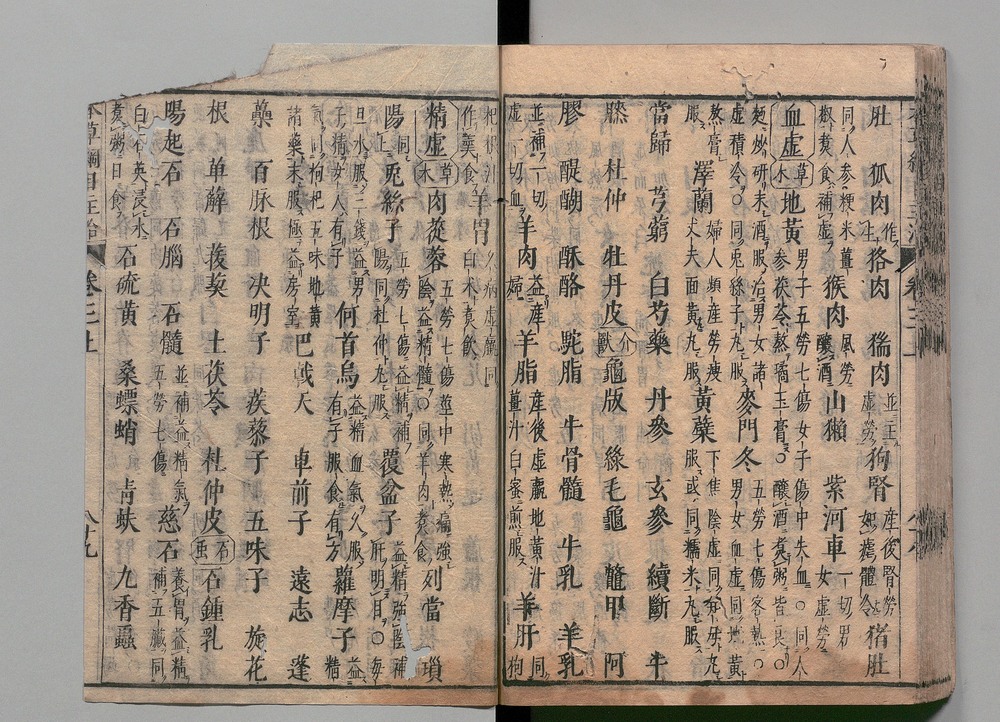 肚 狐肉作生 狢肉 猯肉並主虛勞 狗腎產後腎勞如瘧體冷 猪肚
同人參粳米薑椒煑食補虛 猴肉風勞釀酒 山獺 紫河車一切男女虛勞
血虛 草木 地黃男子五勞七傷女子傷中失血○同人參茯苓熬瓊玉膏○釀酒煑粥皆良○
麵炒研末酒服治男女諸虛積冷○同兔絲子丸服 麥門冬五勞七傷客熱○男女血虛同地黃
熬膏服 澤蘭婦人頻產勞瘦丈夫面黃丸服 黃蘗下焦陰虛同知母丸服或同糯米丸服
當歸 芎藭 白芍藥 丹參 玄參 續斷 牛
膝 杜仲 牡丹皮 介獸 龜版 綠毛龜 鼈甲 阿
膠 醍醐 酥酪 駝脂 牛骨髓 牛乳 羊乳
並補一切虛一切血 羊肉益產婦 羊脂產後虛羸地黃汁薑汁白蜜煎服 羊肝同枸
杞根汁作羹食 羊胃久病虛羸同白朮煑飲
精虛 草木 肉蓯蓉五勞七傷莖中寒熱痛強陰益精髓○同羊肉煑食 列當 瑣
陽同上 兎絲子五勞七傷益精補陽同杜仲丸服 覆盆子益精強陰補肝明目○每
旦水服三錢益男子精女人有子 何首烏益精血氣久服有子服食有方 蘿摩子益精
氣同枸杞五味地黃諸藥末服極益房室 巴戟天 車前子 遠志 蓬
蘽 百脉根 决明子 蒺藜子 五味子 旋花
根 萆薢 菝葜 土茯苓 杜仲皮 石虫 石鍾乳
陽起石 石腦 石髓並補益精氣五勞七傷 慈石養腎益精補五臟同
白石英浸水煑粥日食 石硫黃 桑螵蛸 青蚨 九香蟲
卷三上
八十九